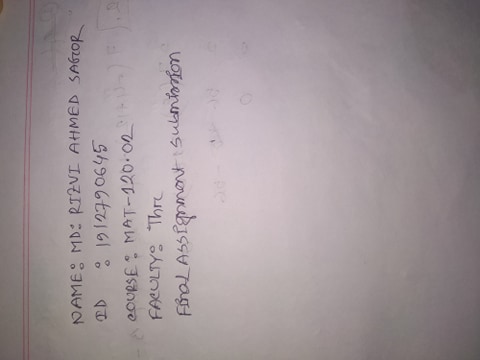 NAME: MD: RIZVI AHMED SAGOR
ID : 1912790645
COURSE: MAT-120.02
FACULTY: Thre
Final ASSignment submission